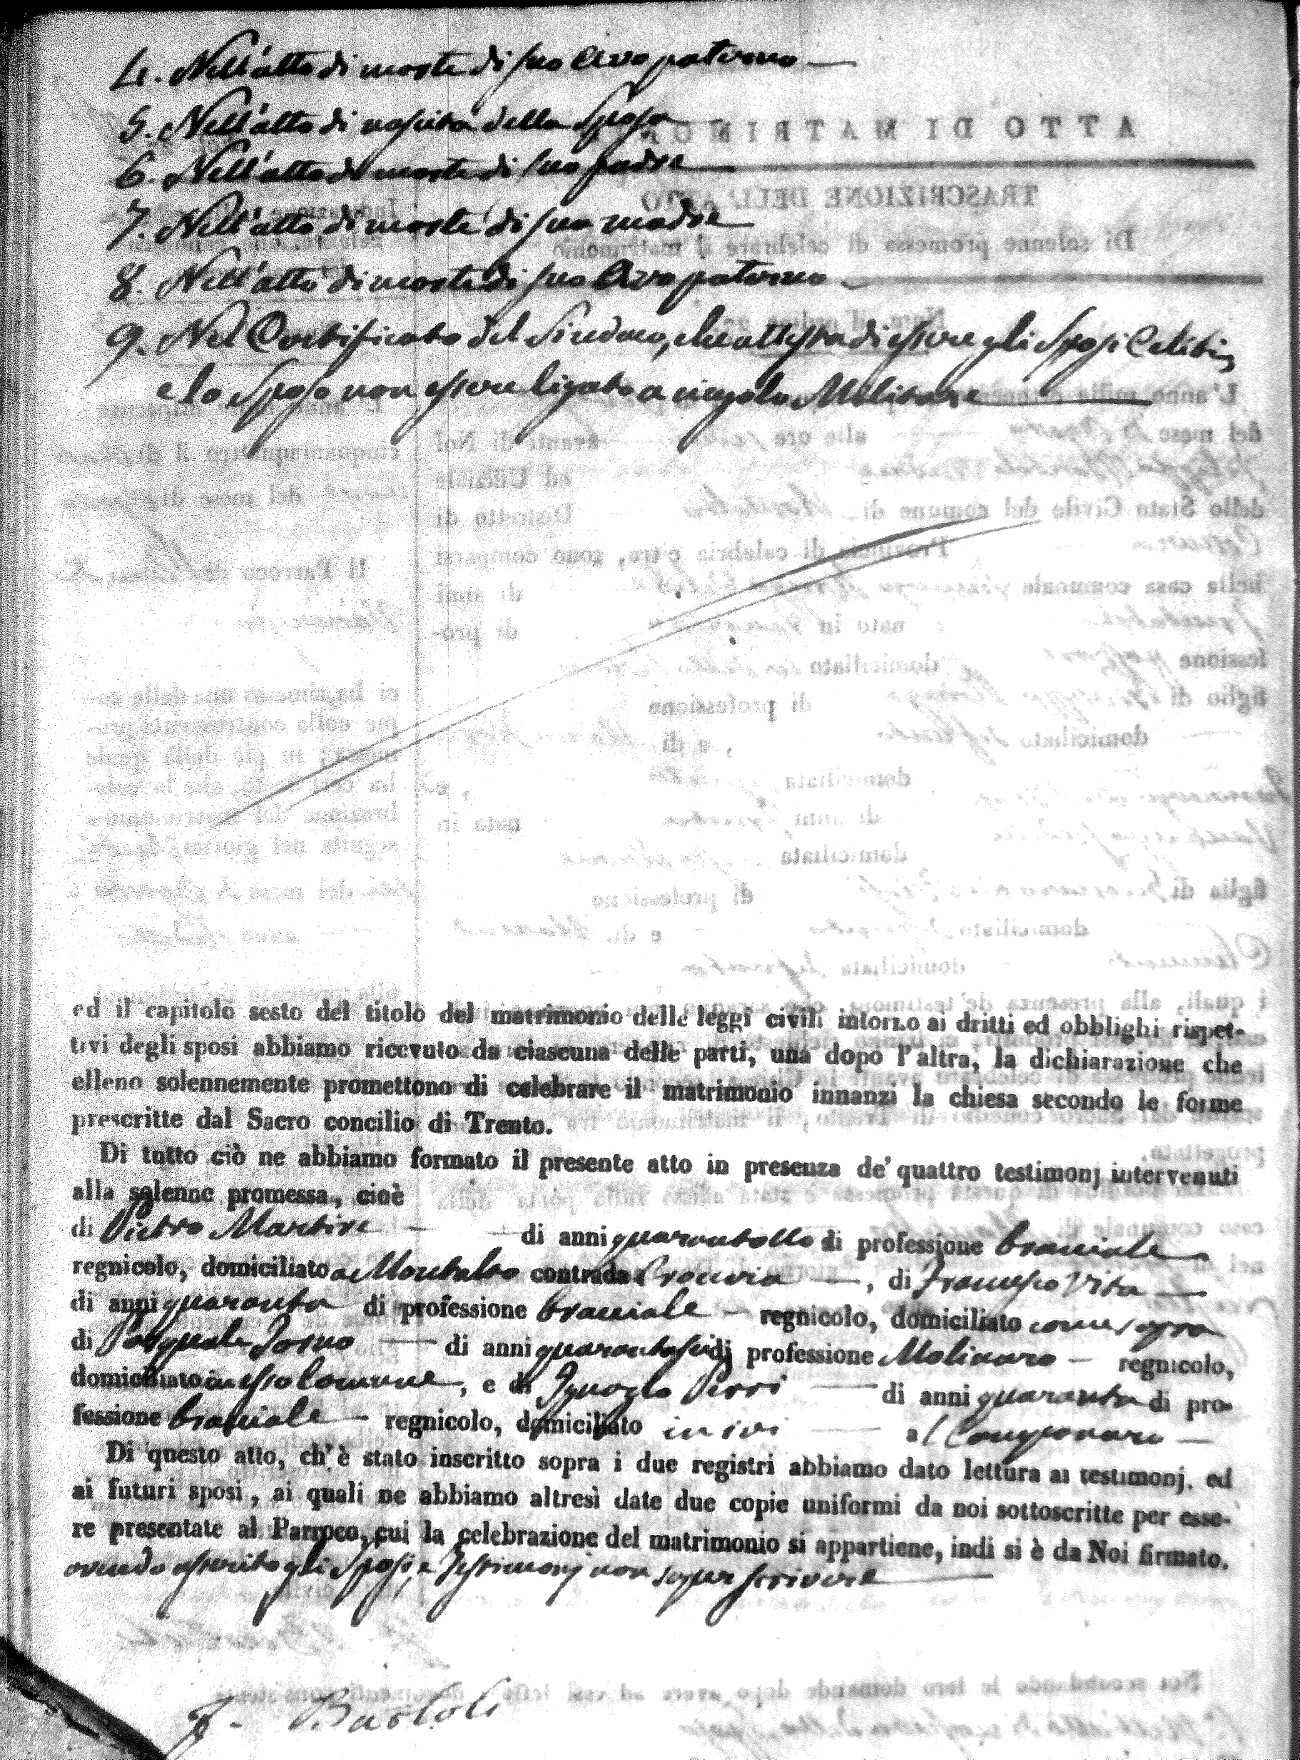 4. Nell'atto di morte di suo Avo paterno
5. Nell'atto di nascita della Sposa
6. Nell'atto di morte di suo padre
7. Nell'atto di morte di sua madre
8. Nell'atto di morte di suo Avo paterno
9. Nel Certificato del Sindaco, che attesta di essere gli Sposi Celibi,
e lo Sposo non essere ligato a cingolo Militare
ed il capitolo sesto del titolo del matrimonio delle leggi civili intorno ai dritti ed obblighi rispet-
tivi degli sposi abbiamo ricevuto da ciascuna delle parti, una dopo l'altra, la dichiarazione che
elleno solennemente promettono di celebrare il matrimonio innanzi la chiesa secondo le forme
prescritte dal Sacro concilio di Trento.
Di tutto ciò ne abbiamo formato il presente atto in presenza de' quattro testimonj intervenuti
alla solenne promessa, cioè
di Pietro Martire di anni quarantotto di professione bracciale
regnicolo, domiciliato a Montalto contrada, di Francesco Vita
di anni quaranta di professione bracciale regnicolo, domiciliato come sopra
di Pasquale di anni quarantasei di professione Molinaro regnicolo,
domiciliato in esso Comune, e di Ignazio Pirri di anni quaranta di pro-
fessione bracciale regnicolo, domiciliato in ivi
Di questo atto, ch'è stato inscritto sopra i due registri abbiamo dato lettura ai testimonj, ed
ai futuri sposi, ai quali ne abbiamo altresì date due copie uniformi da noi sottoscritte per esse-
re presentate al Parroco, cui la celebrazione del matrimonio si appartiene, indi si è da Noi firmato.
avendo asserito gli Sposi, e Testimonj non saper scrivere